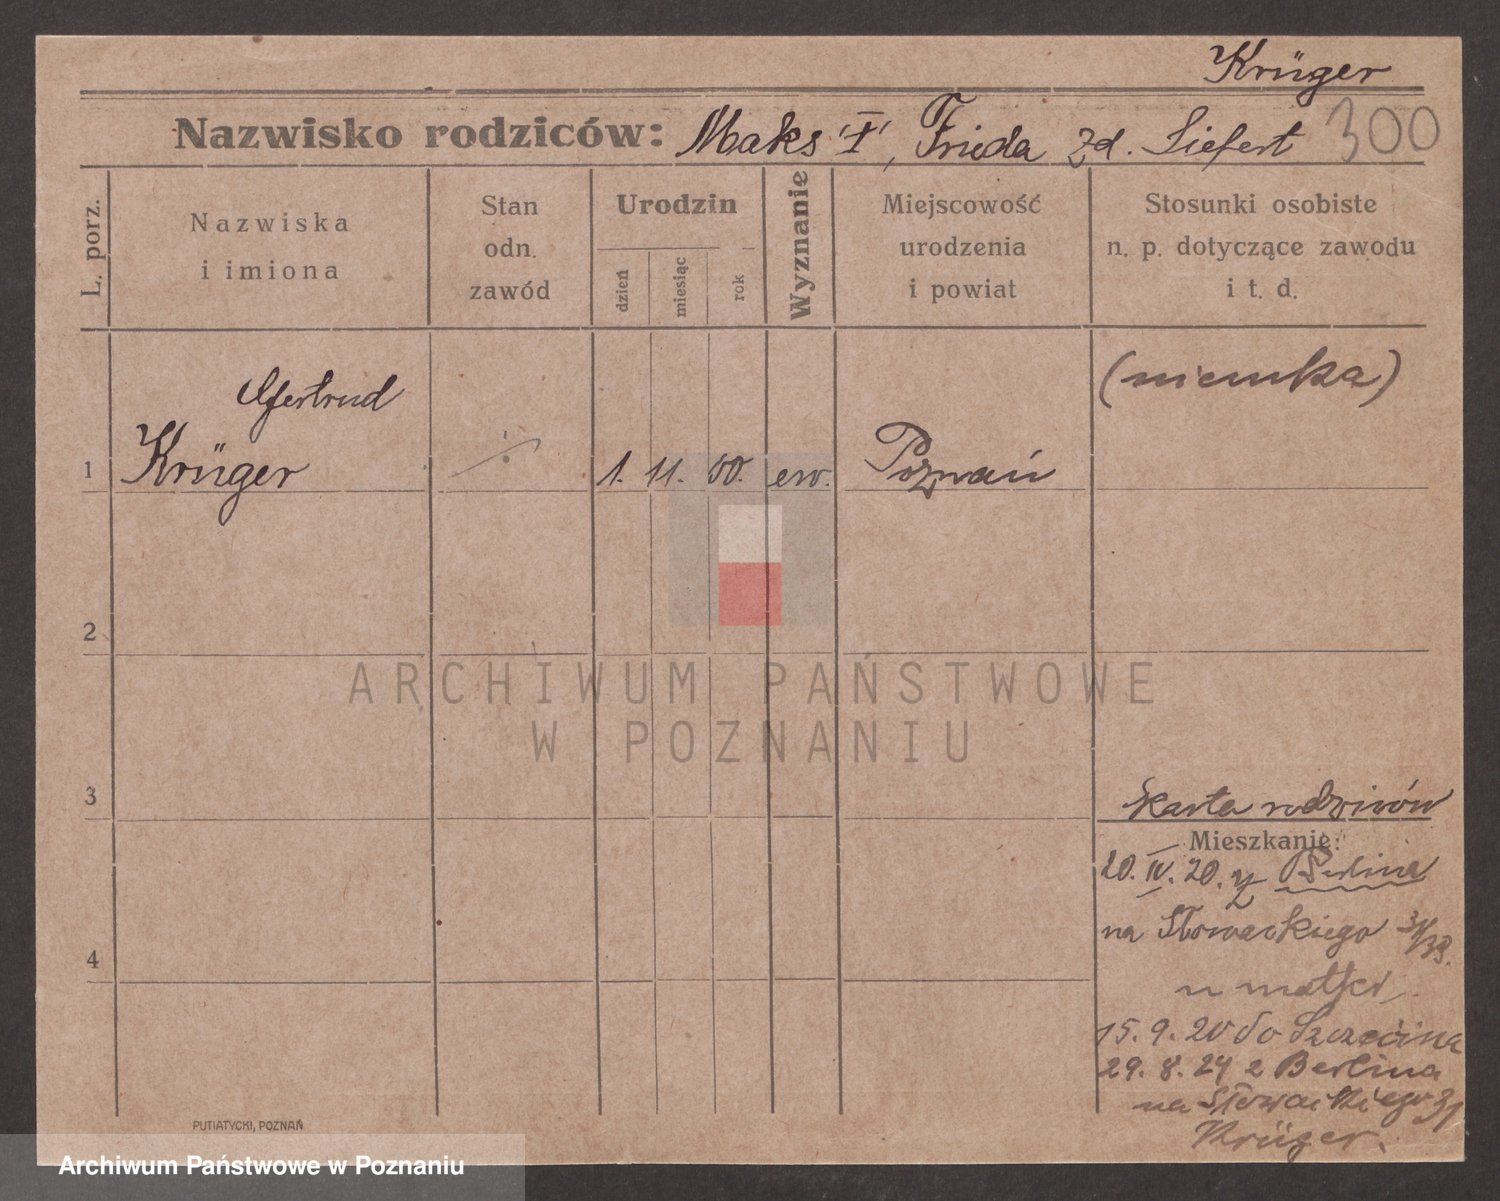 Krüger
Nazwisko rodziców: Maks "I", Frieda zd. Siefert 300
L. porz.
Nazwiska
i imiona
Stan
odn.
zawód
Urodzin
dzień
miesiąc
rok
Wyznanie
Miejscowość
urodzenia
i powiat
Stosunki osobiste
n. p. dotyczące zawodu
i t. d.
(niemka)
Gertrud
1 Krüger 1. 11. 00. ew. Poznań
2
ARCHIWUM PAŃSTWOWE
W POZNANIU
3
Karta rodziców
Mieszkanie:
20. IV. 20. z Berlina
na Słowackiego
4
u matki
15. 9. 20 do Szczecina
29. 8. 24 z Berlina
na Słowackiego 31
Krüger.
PUTIATYCKI, POZNAŃ
Archiwum Państwowe w Poznaniu